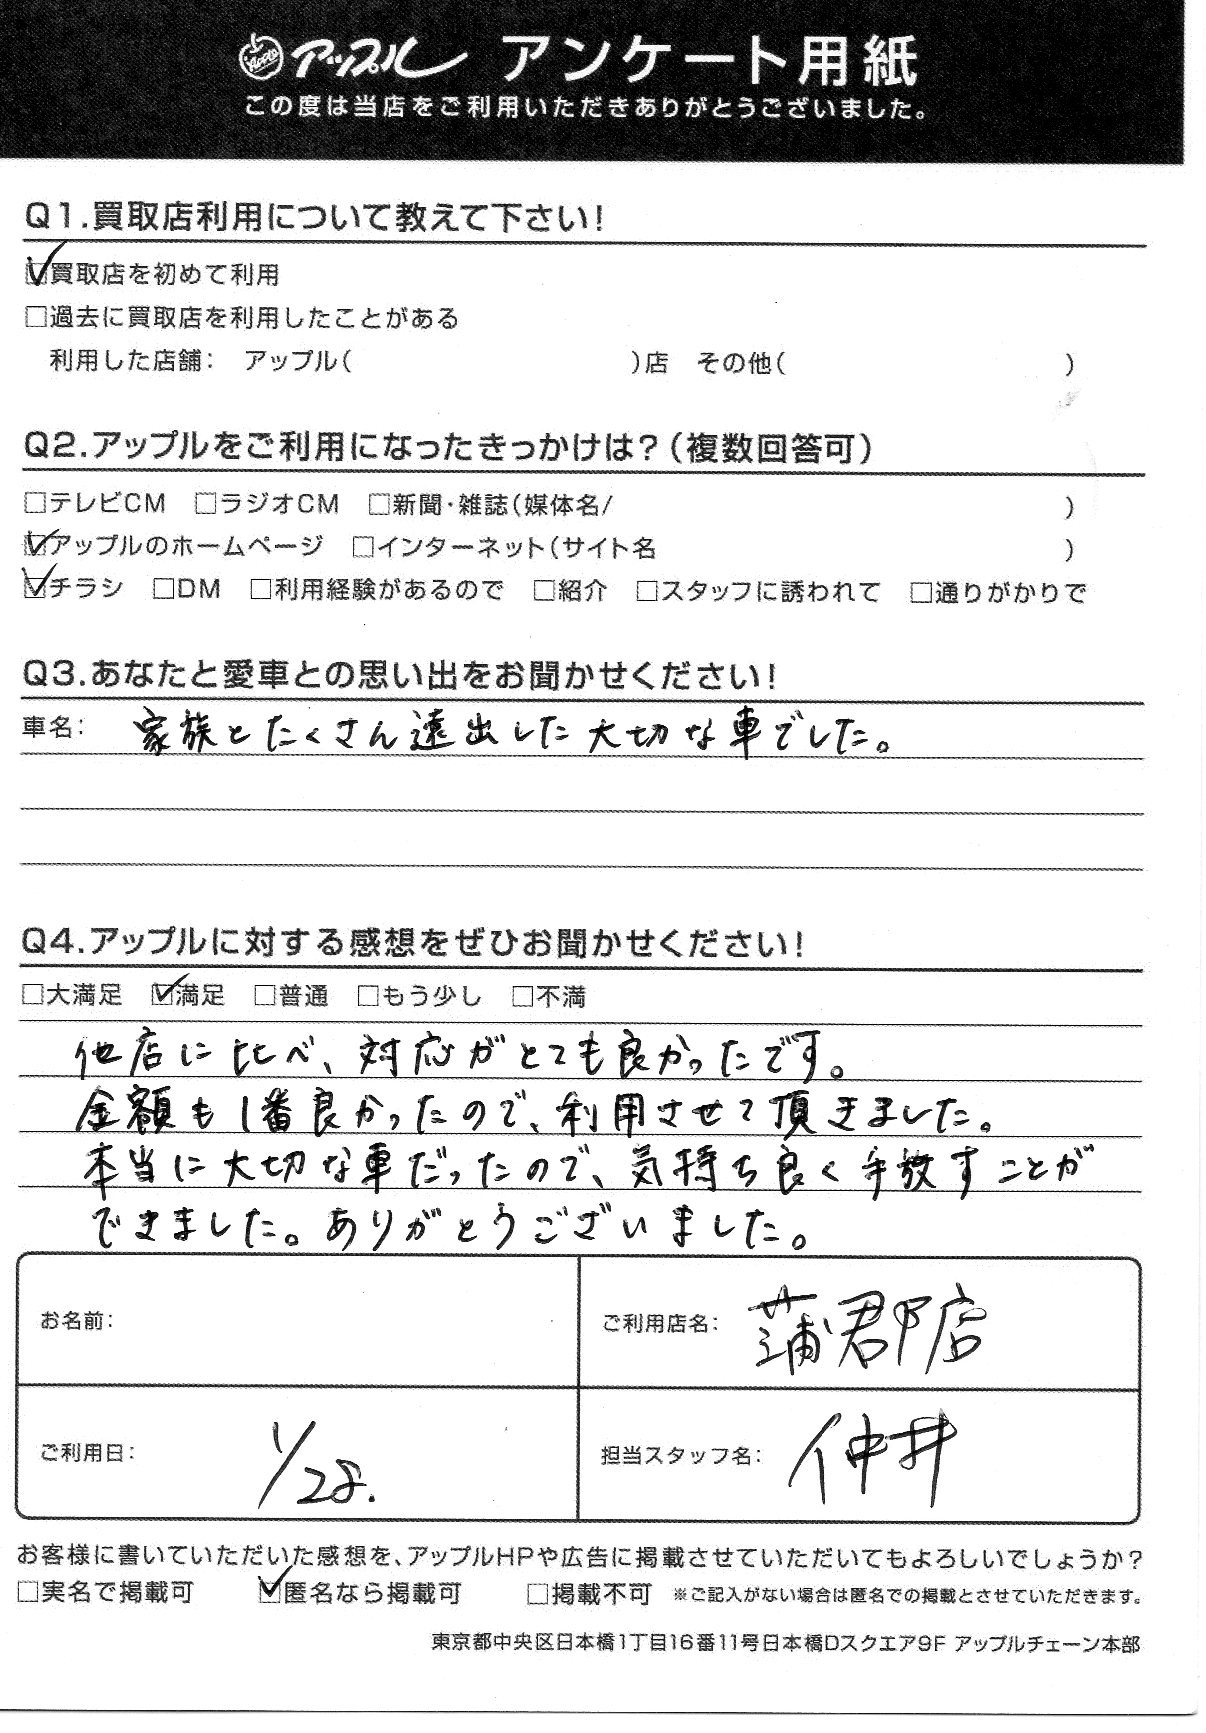 アップル アンケート用紙
この度は当店をご利用いただきありがとうございました。
Q1.買取店利用について教えて下さい!
☑買取店を初めて利用
□過去に買取店を利用したことがある
利用した店舗: アップル( )店 その他( )
Q2.アップルをご利用になったきっかけは?(複数回答可)
□テレビCM □ラジオCM □新聞・雑誌(媒体名/ )
☑アップルのホームページ □インターネット(サイト名 )
☑チラシ □DM □利用経験があるので □紹介 □スタッフに誘われて □通りがかりで
Q3.あなたと愛車との思い出をお聞かせください!
車名: 家族とたくさん遠出した大切な車でした。
Q4.アップルに対する感想をぜひお聞かせください!
□大満足 ☑満足 □普通 □もう少し □不満
他店に比べ、対応がとても良かったです。
金額も1番良かったので、利用させて頂きました。
本当に大切な車だったので、気持ち良く手放すことが
できました。ありがとうございました。
お名前:
ご利用店名: 蒲郡店
ご利用日: 1/28.
担当スタッフ名: 仲井
お客様に書いていただいた感想を、アップルHPや広告に掲載させていただいてもよろしいでしょうか?
□実名で掲載可 ☑匿名なら掲載可 □掲載不可 ※ご記入がない場合は匿名での掲載とさせていただきます。
東京都中央区日本橋1丁目16番11号日本橋Dスクエア9F アップルチェーン本部